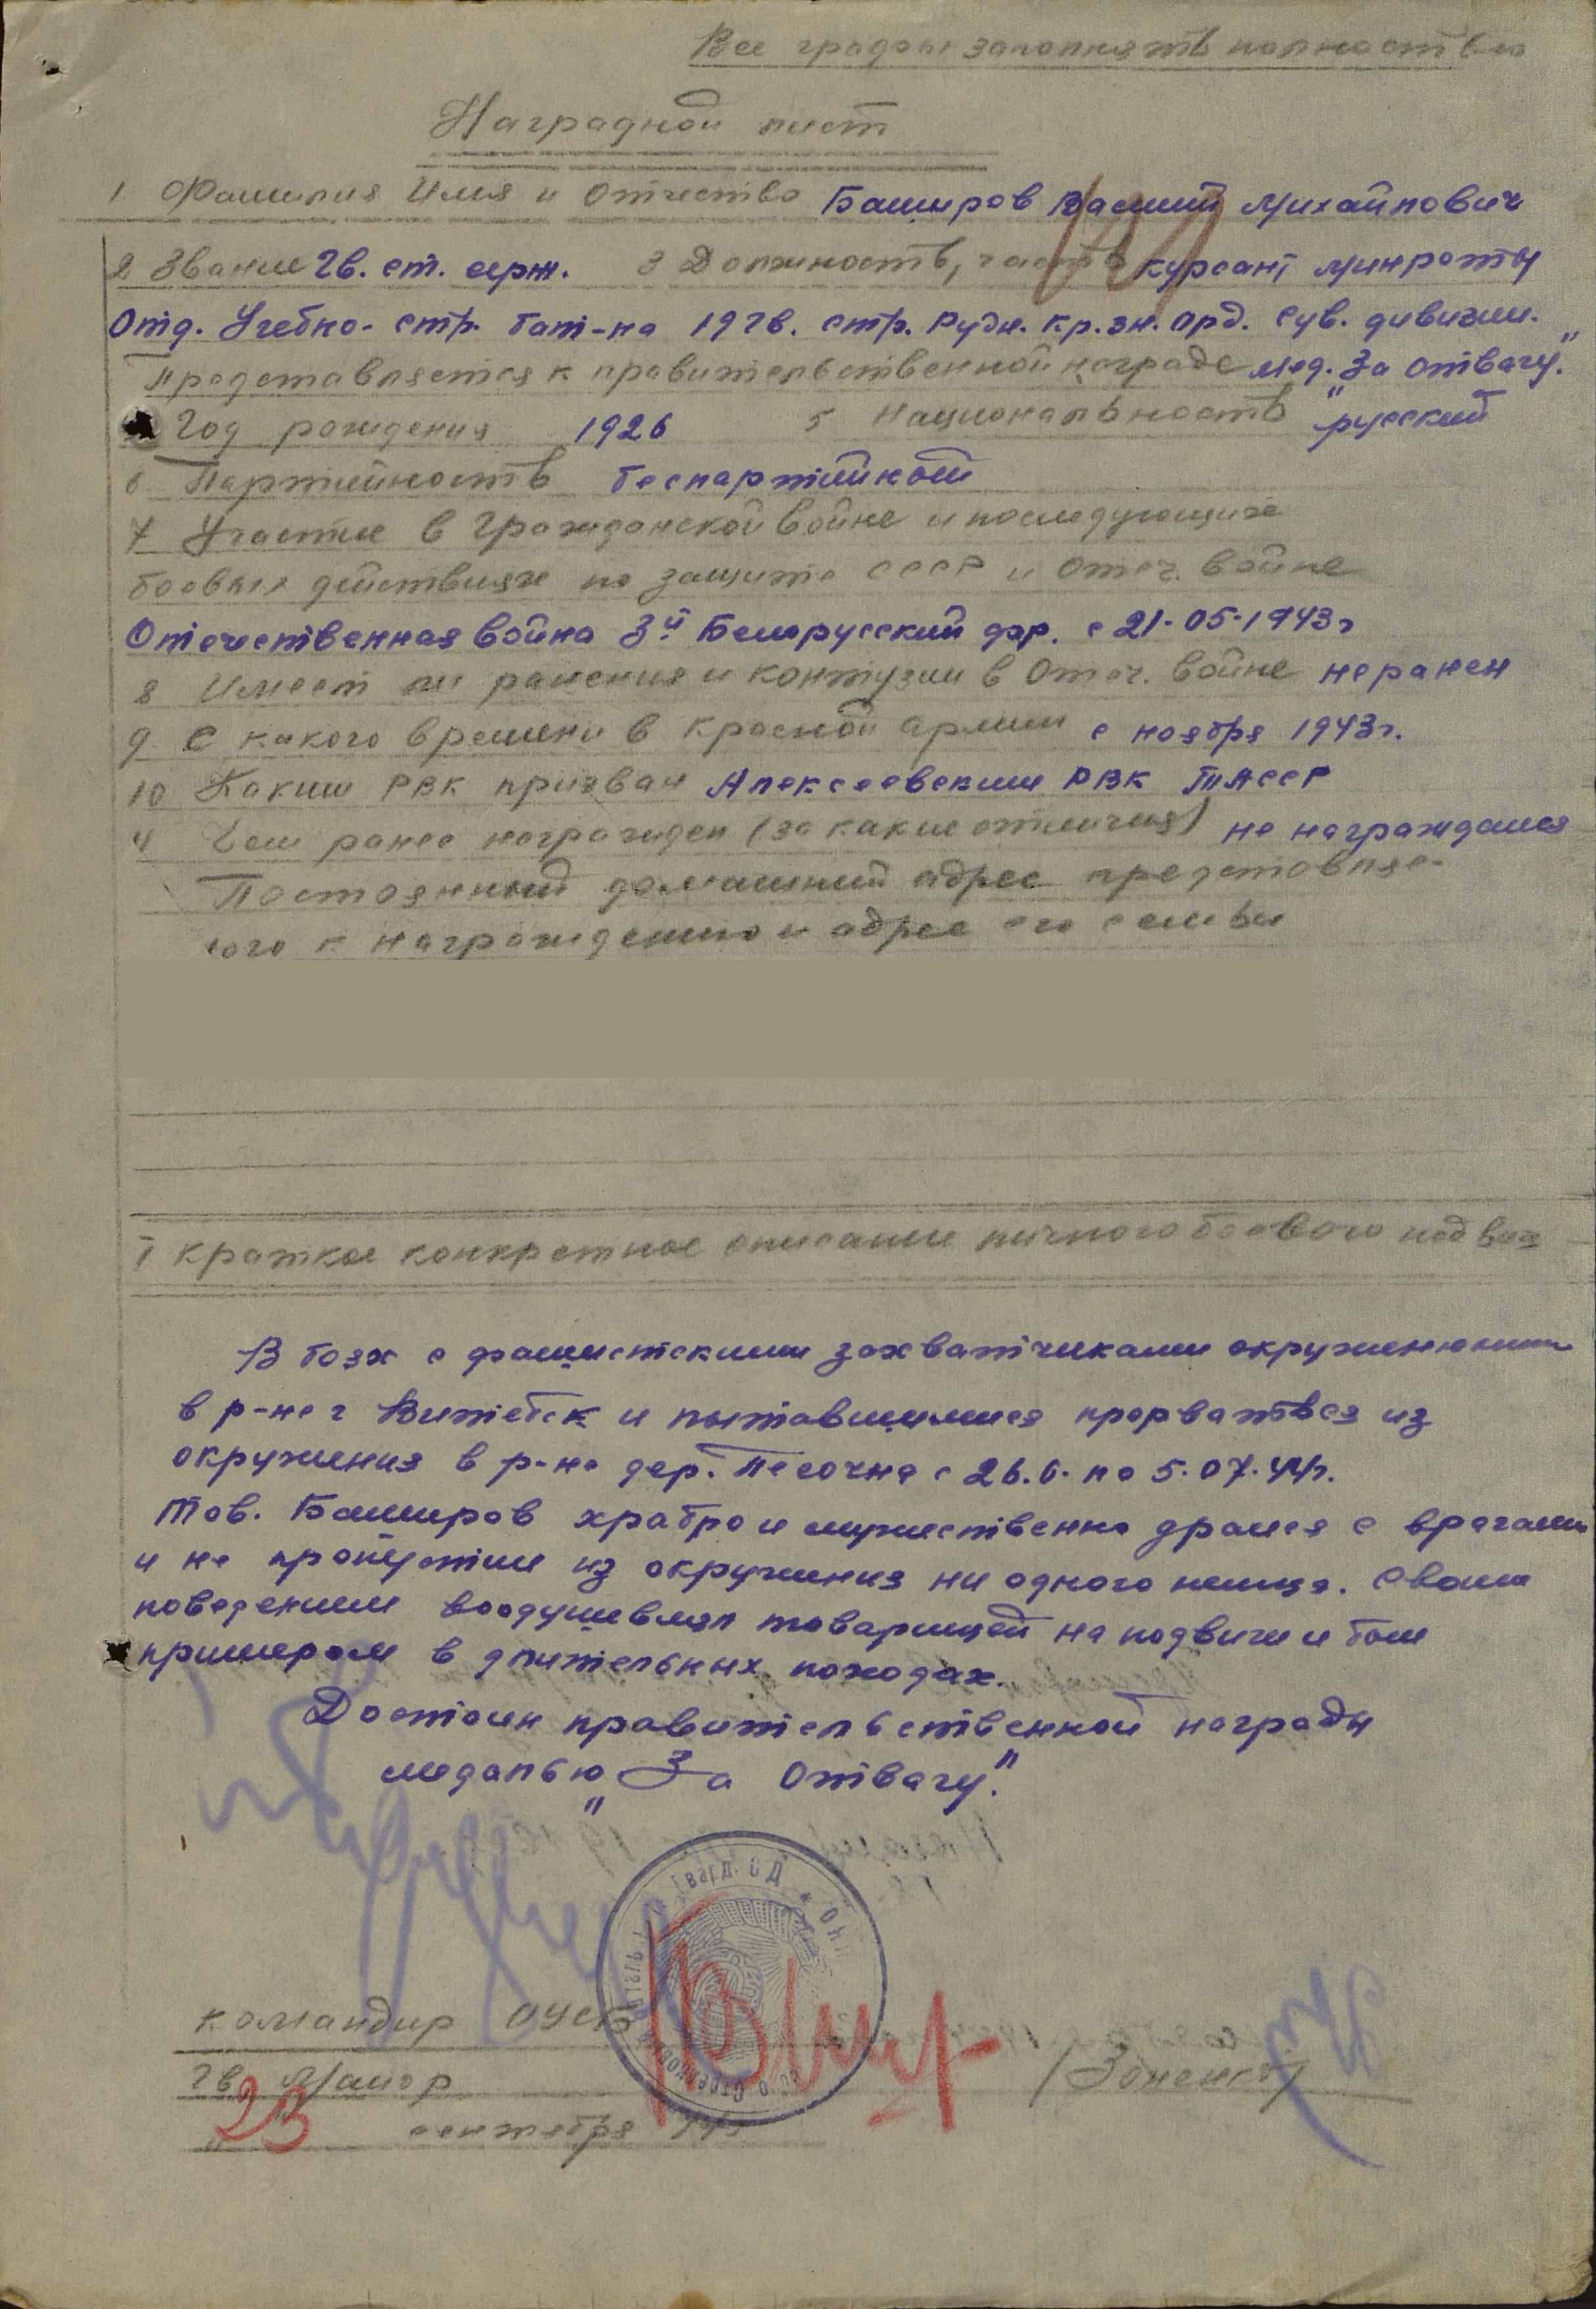 Все графы заполнять полностью
Наградной лист
1 Фамилия Имя и Отчество Баширов Василий Михайлович
2 Звание Гв. ст. серж. 3 Должность, часть курсант минроты
Отд. Учебно-стр. бат-на 19 гв. стр. Рудн. Кр. зн. орд. Сув. дивизии.
Представляется к правительственной награде мед. „За отвагу"
Год рождения 1926 5 Национальность русский
6 Партийность беспартийный
7 Участие в гражданской войне и последующих
боевых действиях по защите СССР и Отеч. войне
Отечественная война 3й Белорусский фр. с 21-05-1943г
8 Имеет ли ранения и контузии в Отеч. войне не ранен
9. С какого времени в Красной армии с ноября 1943г.
10 Каким РВК призван Алексеевским РВК ТАССР
11 Чем ранее награжден (за какие отличия) не награждался
Постоянный домашний адрес представляе-
мого к награждению и адрес его семьи
I Краткое конкретное описание личного боевого подвига
В боях с фашистскими захватчиками окруженными
в р-не г Витебск и пытавшимися прорваться из
окружения в р-не дер. Песочна с 26.6. по 5.07.44г.
Тов. Баширов храбро и мужественно дрался с врагами
и не пропустил из окружения ни одного немца. Своим
поведением воодушевлял товарищей на подвиги и был
примером в длительных походах.
Достоин правительственной награды
медалью „За Отвагу".
Гвард. СД
командир ОУСБ
гв. Майор
23 сентября 44г